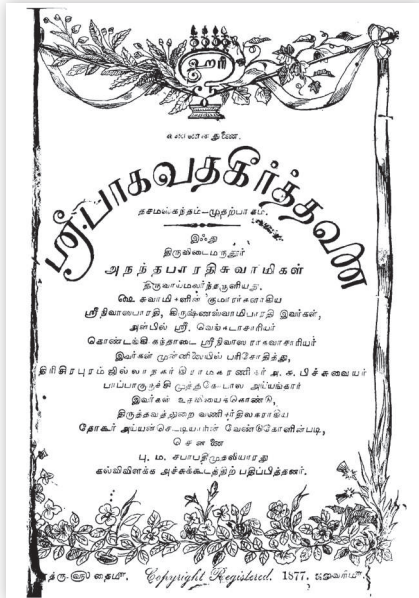 ஹரி
துணை.
ஸ்ரீபாகவதகீர்த்தனை
தசமஸ்கந்தம்—முதற்பாகம்.
இஃது
திருவிடைமருதூர்
அநந்தபாரதிசுவாமிகள்
திருவாய்மலர்ந்தருளியது.
சுவாமிகளின் குமாரர்களாகிய
ஸ்ரீநிவாஸபாரதி, கிருஷ்ணஸ்வாமிபாரதி இவர்கள்,
அன்பில் ஸ்ரீ. வெங்கடாசாரியர்
கொண்டங்கி கந்தாடை ஸ்ரீநிவாஸ ராகவாசாரியர்
இவர்கள் முன்னிலையில் பரிசோதித்து,
அ. சு. பிச்சுவையர்
அய்யங்கார்
இவர்கள் உதவியைக்கொண்டு,
திருத்தவத்துறை வணிகர்திலகராகிய
தோகூர் அய்யன்செட்டியாரின் வேண்டுகோளின்படி,
சென்னை
பு. ம. சபாபதிமுதலியாரது
கல்விவிளக்க அச்சுக்கூடத்திற் பதிப்பித்தனர்.
Copyright Registered. 1877.